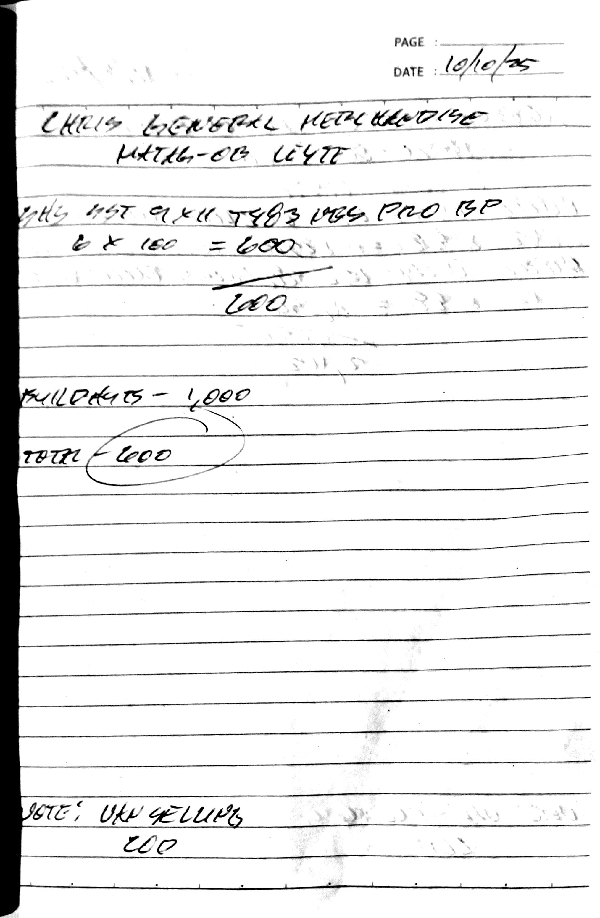 PAGE :
DATE : 10/10/25
CHRIS GENERAL MERCHANDISE
MATAG-OB LEYTE
9X11 PRO BP
6 X 100 = 600
600
- 1,000
TOTAL - 600
NOTE: VAN SELLING
200